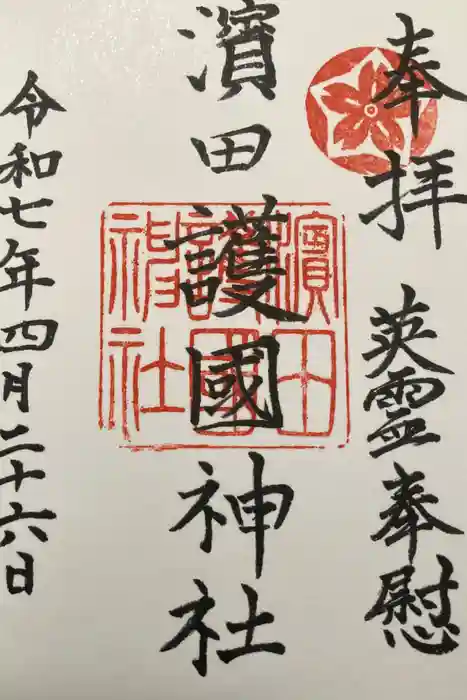 奉拝 英霊奉慰
濱田護國神社
濱田
護國
神社
令和七年四月二十六日